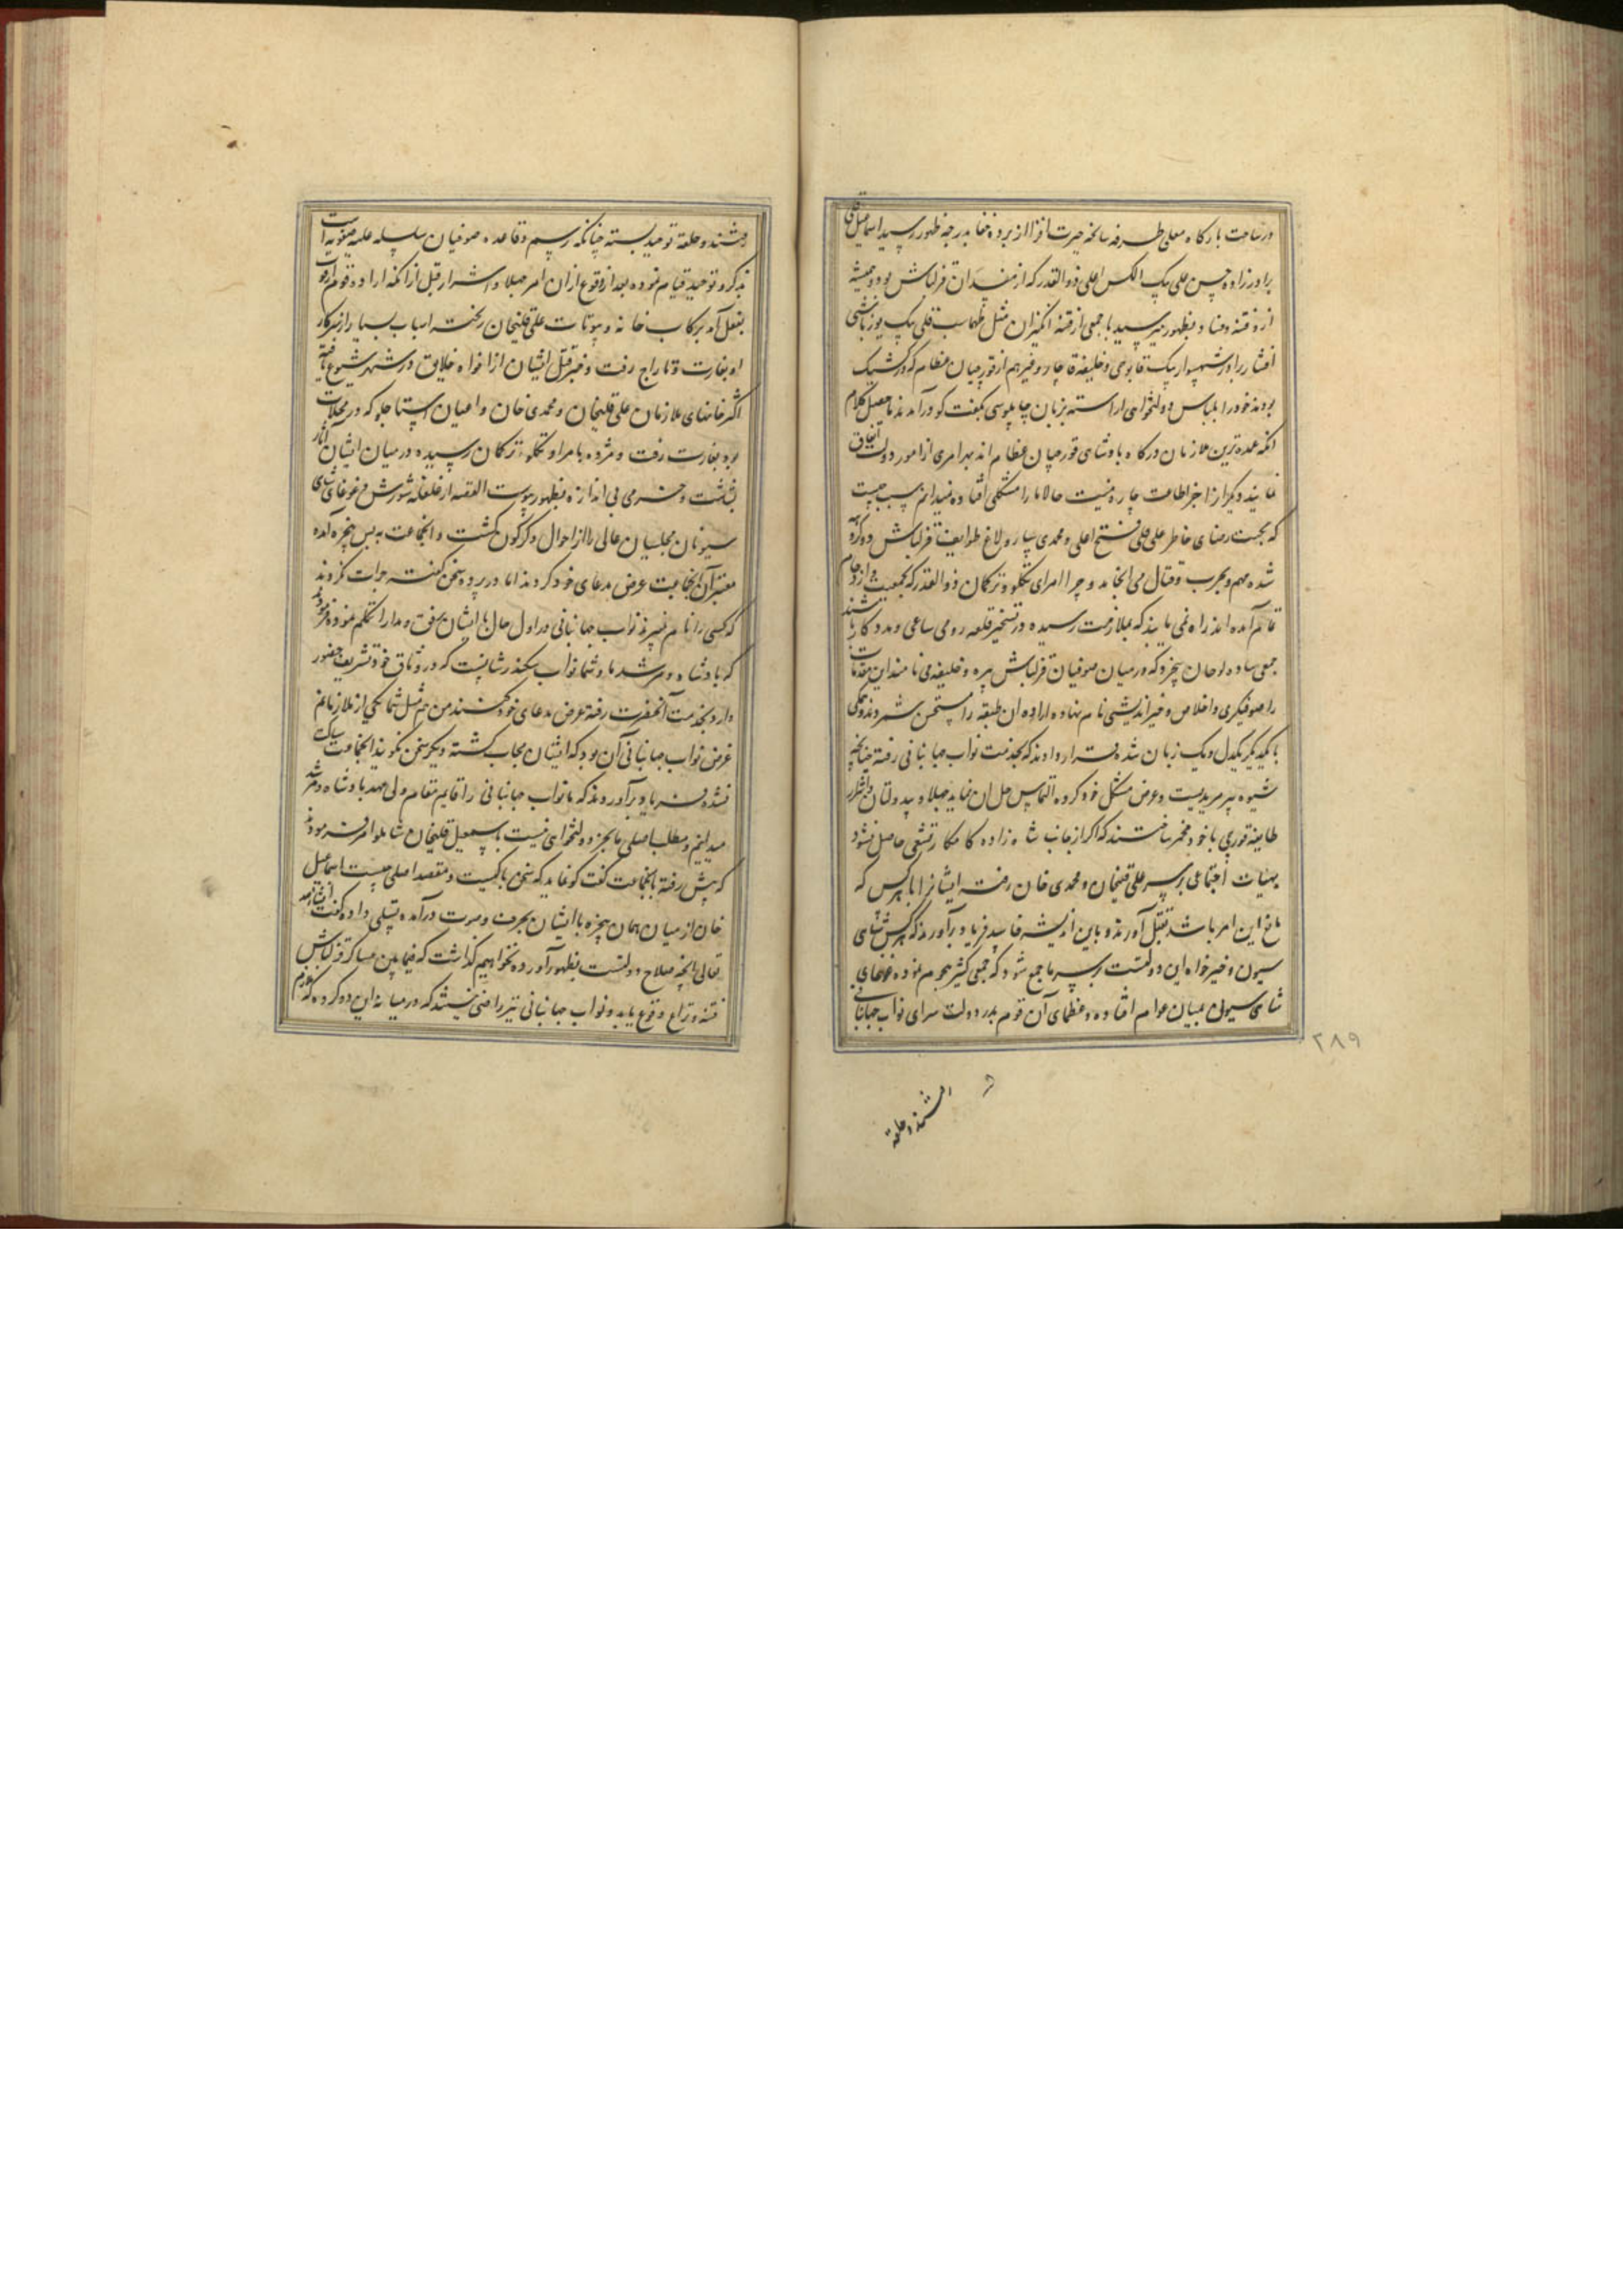 در ساحت بارگاه معلی طرفه سانحه حیرت افزا از پرده خفا بدرجه ظهور رسید اسماعیل قلی
برادرزاده حسن علی بیک الکس اغلی ذوالقدر که از مفسدان قزلباش بود و همیشه
ازو فتنه و فساد بظهور میرسید با جمعی از فتنه انگیزان مثل طهماسب قلی بیک یوزباشی
افشار و شهسوار بیک قاپوچی و خلیفه قاجار و غیرهم از قورچیان عظام که در کشیک
بودند خود را بلباس دولتخواهی اراسته بزبان چاپلوسی بگفت کو درآمدند ماحصل کلام
انکه عمده ترین ملازمان درکاه پادشاهی قورچیان عظام اند بهر امری از امور دولت اتفاق
نمایند دیگرانرا جز اطاعت چاره نیست حالا ما را مشکلی افتاده نمیدانیم سبب چیست
که بجهت رضای خاطر علی قلی فتح اغلی و محمدی ساروسولاغ طوایف قزلباش دو کروه
شده مهم بحرب و قتال می انجامد و چرا امرای تکلو و ترکمان ذوالقدر که بجمعیت و ازدحام
تا قم آمده اند راه نمی یابند که بملازمت رسیده در تسخیر قلعه رومی ساعی و مددکار باشند
جمعی ساده لوحان بیخرد که در میان صوفیان قزلباش پیره و خلیفه می نامند این مقدمات
را صوفیگری و اخلاص و خیراندیشی نام نهاده اراده ان طبقه را مستحسن شمردند و همگی
با یکدیگر یکدل و یک زبان شده قرار دادند که بخدمت نواب جهانبانی رفته چنانچه
شیوه پیر مریدیست و عرض مشکل خود کرده التماس حل ان نمایند جهلا و بیدولتان و اشرار
طایفه قورچی با خود مخمر ساختند که اکر از جانب شاه زاده کامکار تشفی حاصل نشود
بهیات اجتماعی بر سر علی قلیخان و محمدی خان رفته ایشانرا با هر کس که
مانع این امر باشد بقتل آورند و باین اندیشه فاسد فریاد برآوردند که هر کس شاهی
سیون و خیرخواه این دولتست بر سر ما جمع شود که جمعی کثیر هجوم نموده غوغای
شاهی سیونی میان عوام افتاده و عظمای آن قوم بدر دولت سرای نواب جهانبانی
۲۸۹
داشتند و حلقه
داشتند و حلقه توحید بسته چنانکه رسم و قاعده صوفیان سلسله علیه صفویه است
بذکر و توحید قیام نموده بعد از وقوع ازان امر جهلا و اشرار قبل از انکه اراده قوم
بفعل آید برکاب خانه و بیوتات علی قلیخان ریخته اسباب بسیار از سرکار
او بغارت و تاراج رفت و خبر قتل ایشان از افواه خلایق در شهر شیوع یافته
اکثر خانهای ملازمان علی قلیخان و محمدی خان و اعیان استاجلو که در محلات
بود بغارت رفت و مژده بامرا و تکلو و ترکمان رسیده در میان ایشان آثار
بشاشت و خرمی بی اندازه بظهور پیوست القصه از غلغله شورش و غوغای شاهی
سیونان مجلسیان عالی را از احوال دگرگون گشت و انجماعت به پس پنجره آمده
معتبران انجماعت عرض مدعای خود کردند اما در پرده سخن گفته جرات نکردند
که کسی را نام ببرند نواب جهانبانی در اول حال با ایشان برفق و مدارا تکلم نموده فرمودند
که پادشاه و مرشد ما و شما نواب سکندر شانست که در وثاق خود تشریف حضور
دارد بخدمت آنحضرت رفته عرض مدعای خود کنند من هم مثل شما یکی از ملازمانم
غرض نواب جهانبانی آن بود که ایشان مجاب گشته دیگر سخن نگویند انجماعت ساکت
نشده فریاد برآوردند که ما نواب جهانبانی را قایم مقام و ولی عهد پادشاه و مرشد
میدانیم و مطلب اصلی ما بجز دولتخواهی نیست باسمعیل قلیخان شاملو امر فرمودند
که پیش رفته بانجماعت گفت کو نماید که سخن با کیست و مقصد اصلی چیست اسماعیل
خان از میان همان پنجره با ایشان بحرف و صوت درآمده تسلی داده گفت انشاء الله
تعالی بانچه صلاح دولتست بظهور آورده نخواهیم گذاشت که فیمابین عساکر قزلباش
فتنه و نزاع وقوع یابد و نواب جهانبانی نیز راضی نیستند که در میانه این دو کروه که هر دو